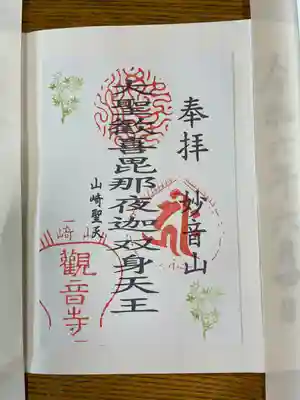 奉拝
妙音山
大聖歡喜毘那夜迦双身天王
山崎聖天
山崎
觀音寺